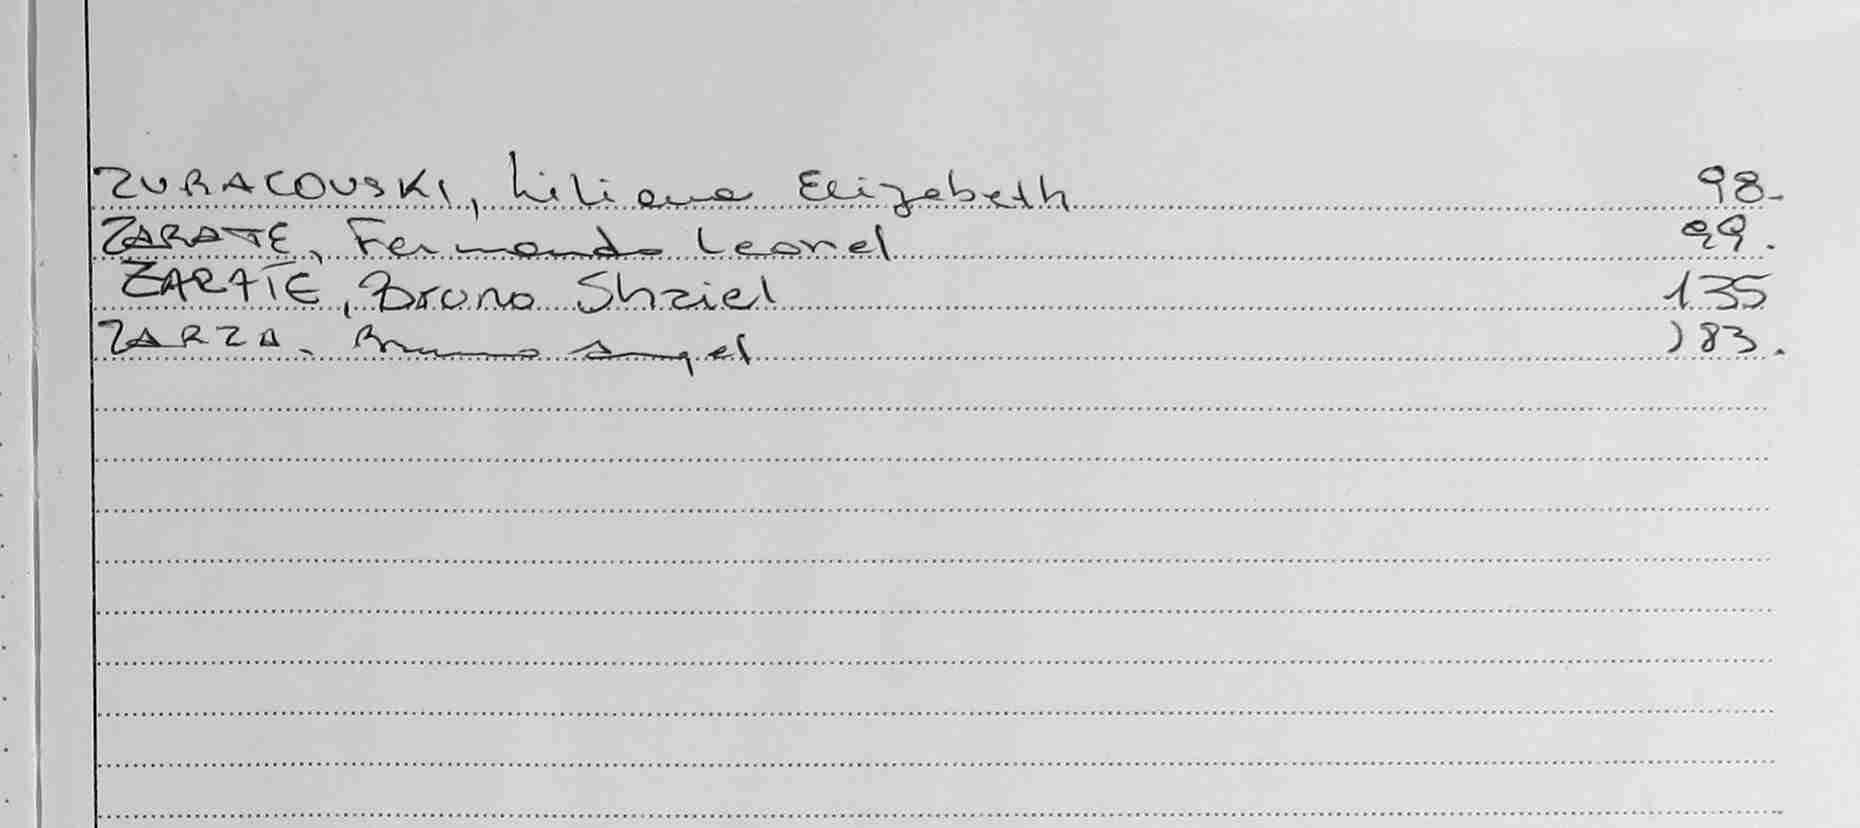 ZURACOUSKI, Liliana Elizabeth 98-
ZARATE, Fernando Leonel 99.
ZARATE, Bruno Shziel 135
ZARZA. Bruno Angel 183.